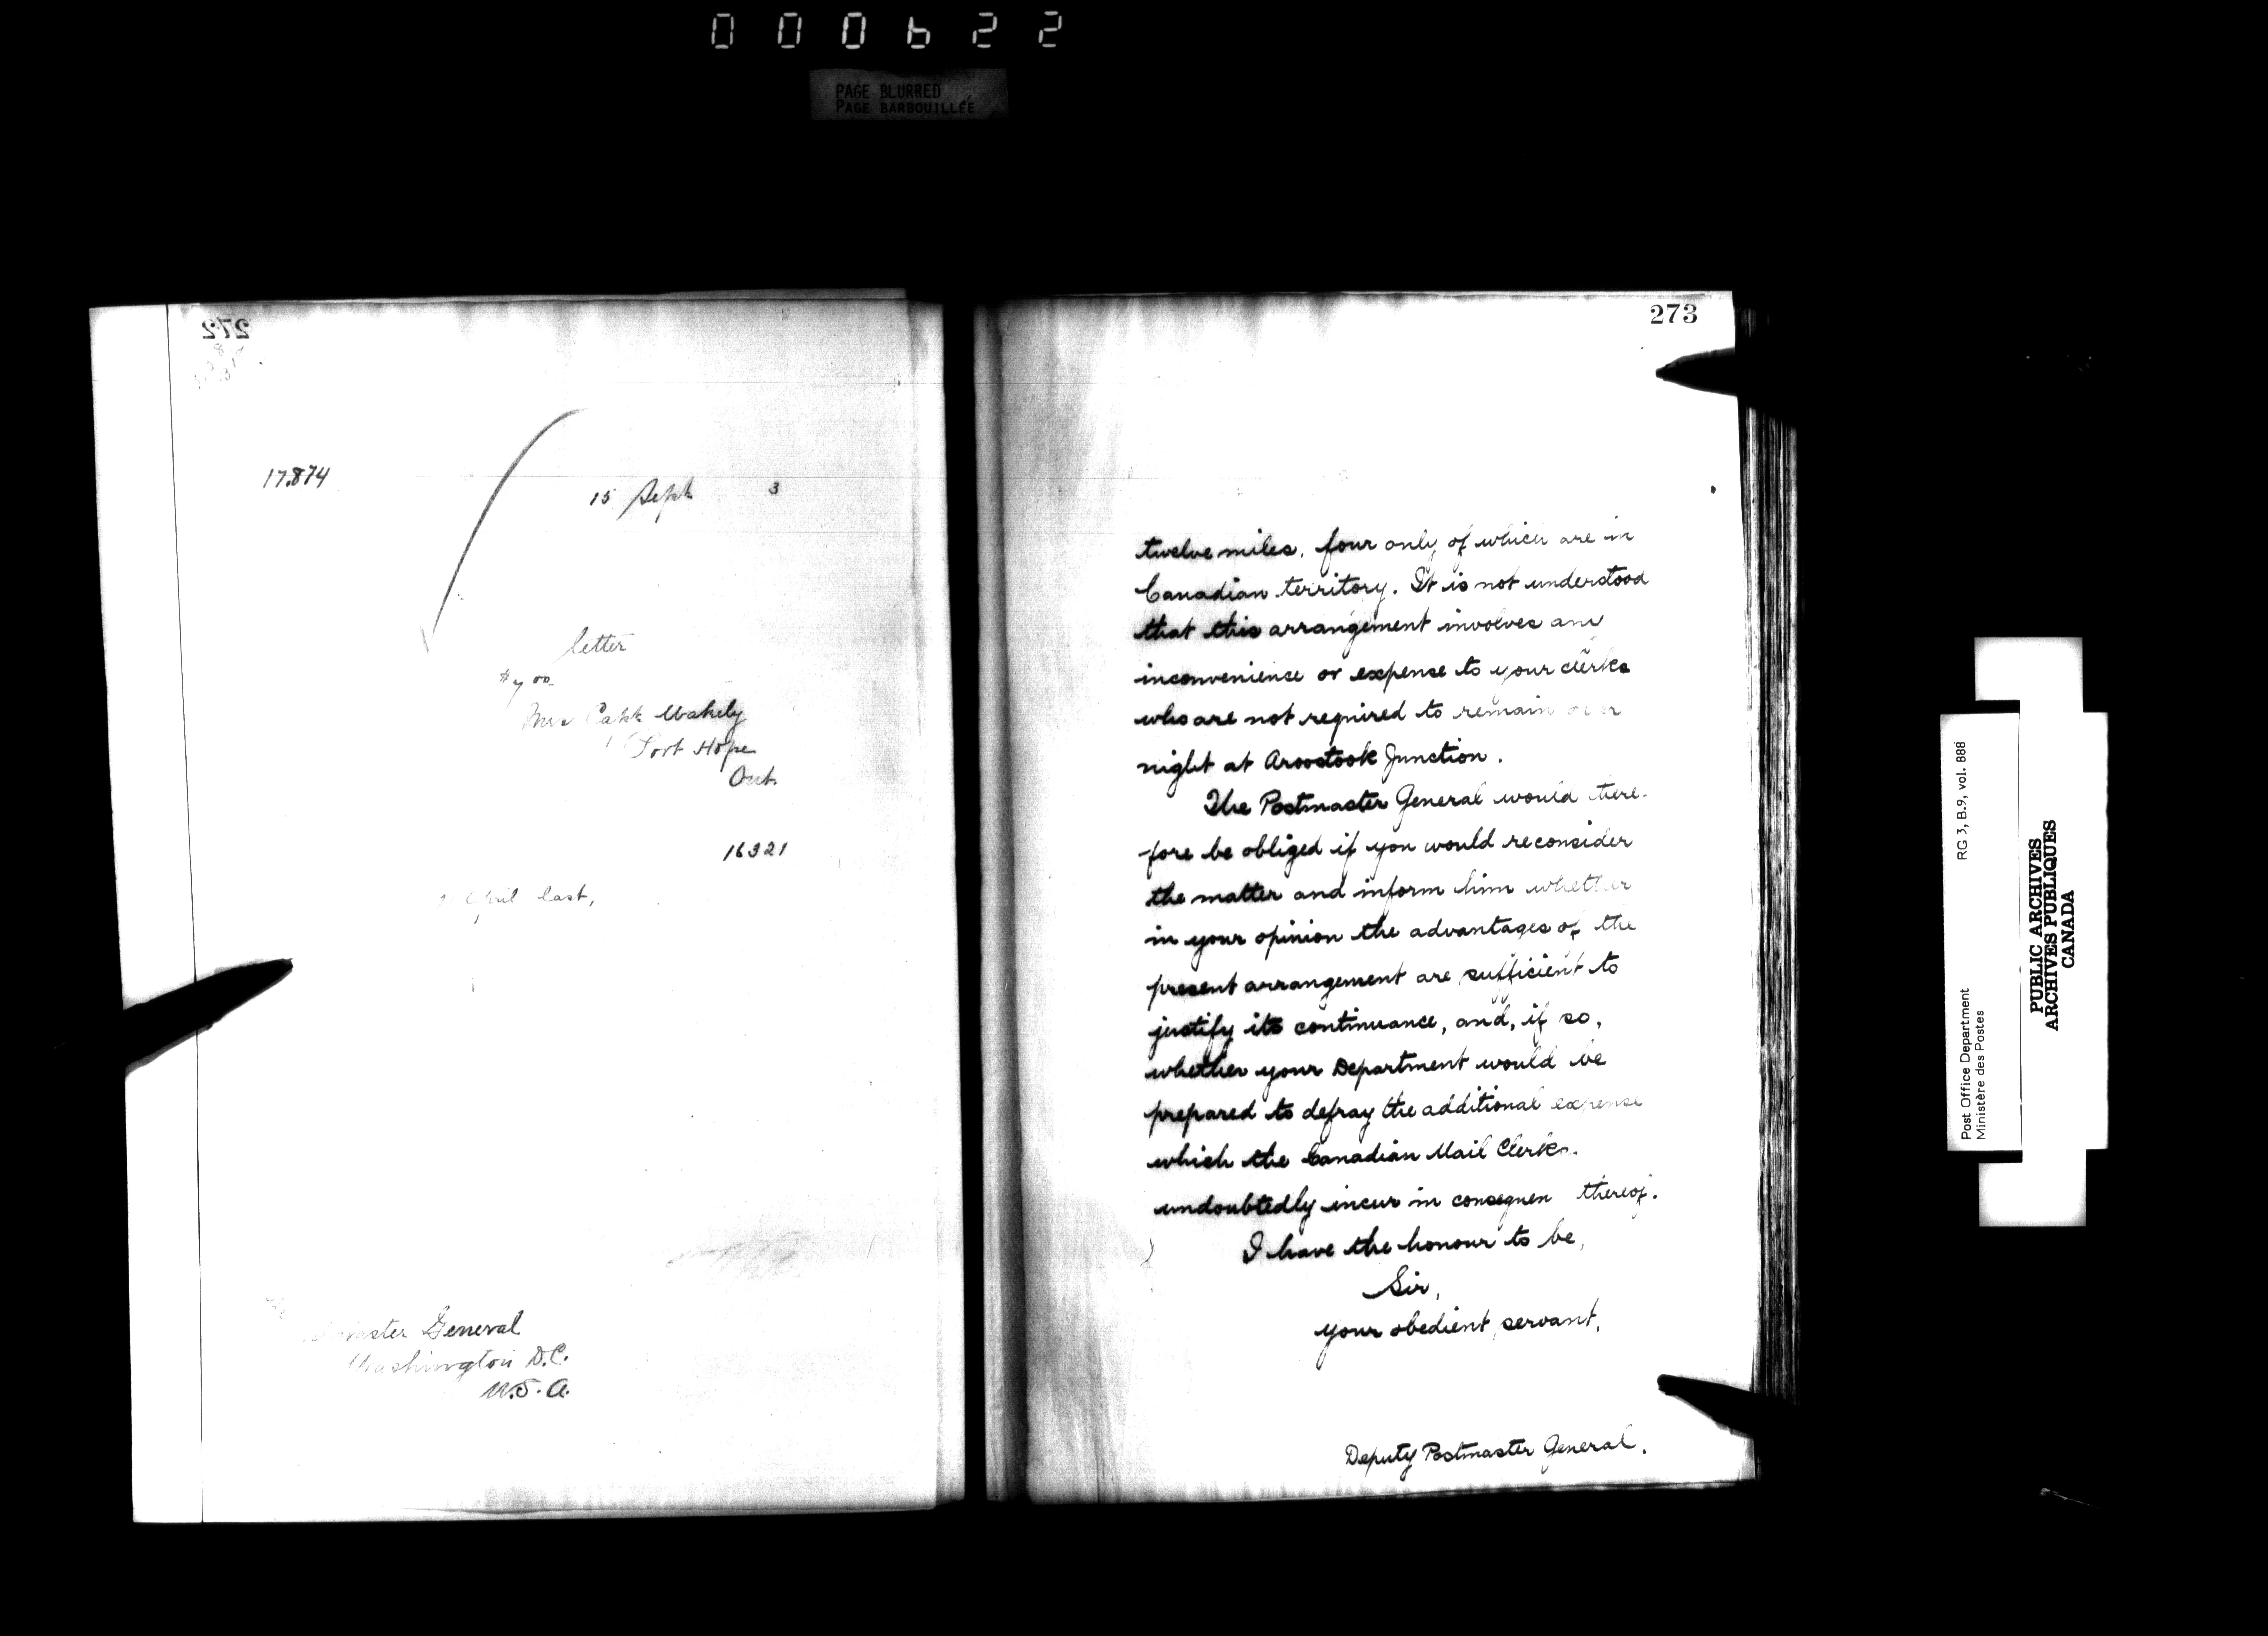 000622
PAGE BLURRED
PAGE BARBOUILLÉE
272
17.874
15 Sept 3
letter
$7 00
Mrs Capt Wakely
Port Hope
Ont.
16321
April last,
General
Washington D.C.
U.S.A.
273
twelve miles, four only of which are in
Canadian territory. It is not understood
that this arrangement involves any
inconvenience or expense to your clerks
who are not required to remain over
night at Aroostook Junction.
The Postmaster General would there-
-fore be obliged if you would reconsider
the matter and inform him whether
in your opinion the advantages of the
present arrangement are sufficient to
justify its continuance, and, if so,
whether your Department would be
prepared to defray the additional expense
which the Canadian Mail Clerks.
undoubtedly incur in consequen thereof.
I have the honour to be,
Sir,
your obedient servant.
Deputy Postmaster General.
Post Office Department
Ministère des Postes
RG 3, B.9, vol. 888
PUBLIC ARCHIVES
ARCHIVES PUBLIQUES
CANADA